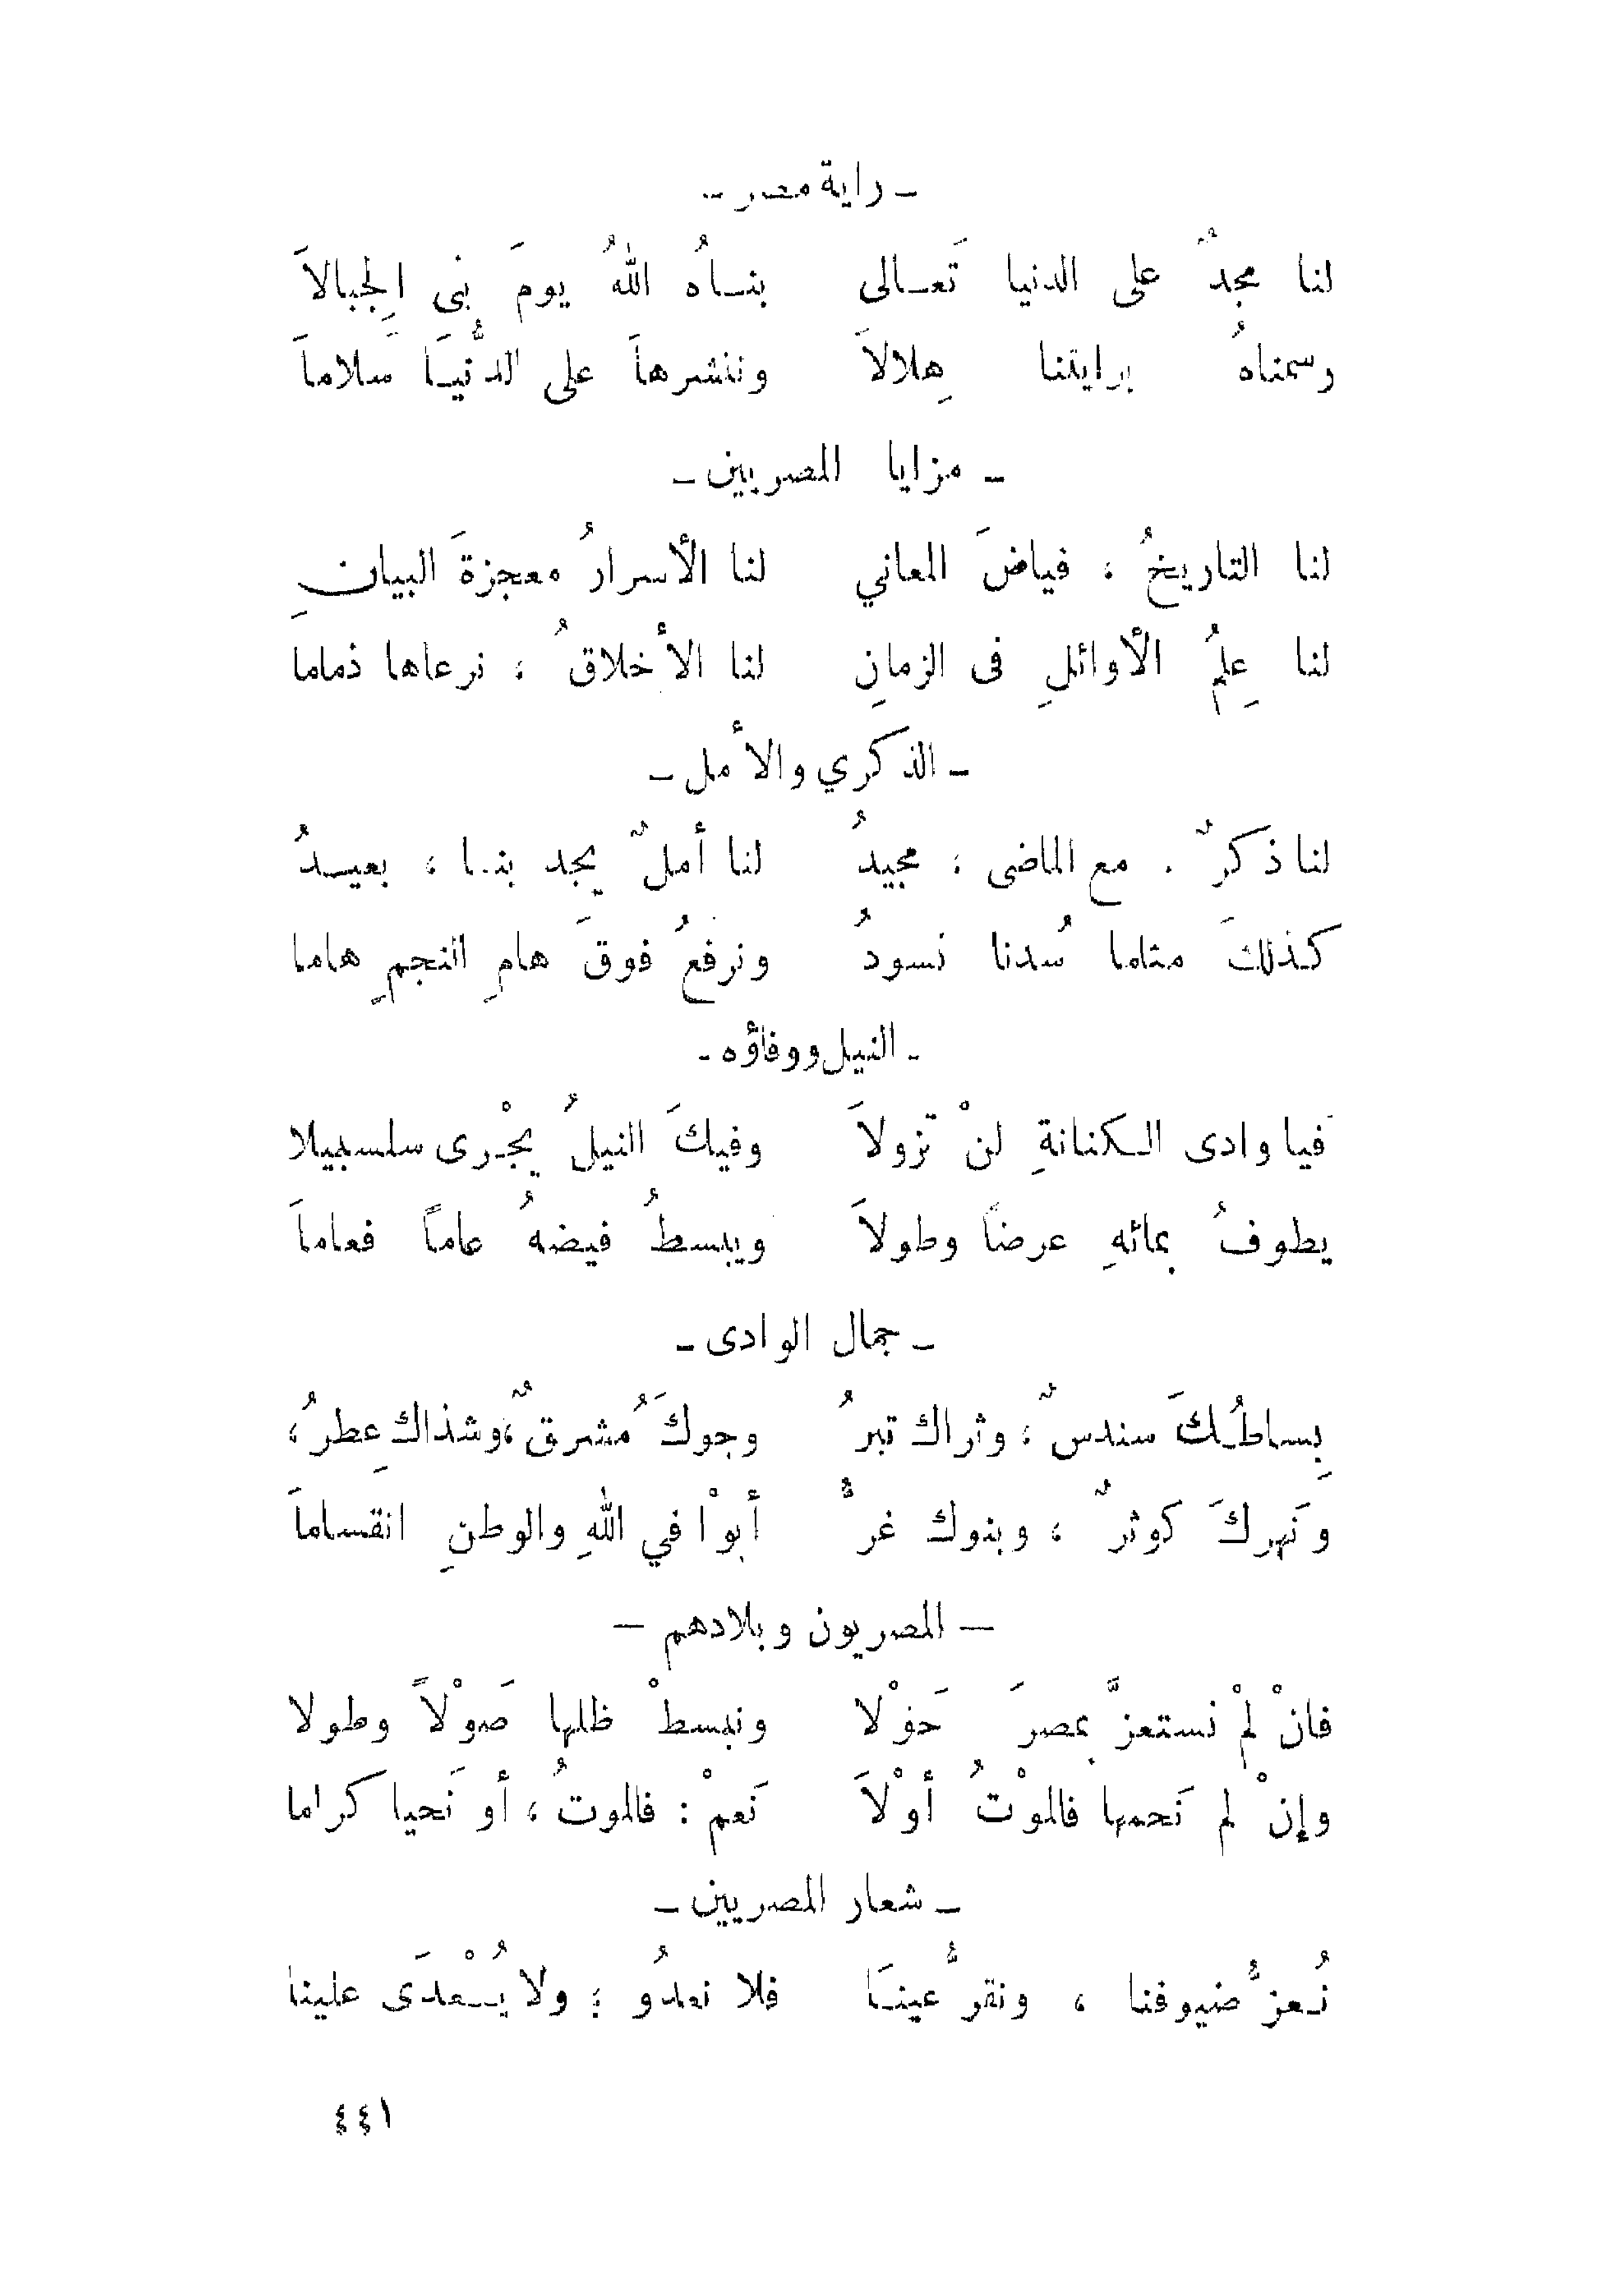 ـ راية مصر ـ
لنا مجدٌ على الدنيا تَعـالى بنـاهُ اللهُ يومَ بنى الجِبالاَ
رسمناهُ برايتنا هِلالاَ وننشرهاَ على الدُّنيـَا سَلاماَ
ـ مزايا المصريين ـ
لنا التاريخُ ، فياضَ المعاني لنا الأسرارُ معجزةَ البيانِ
لنا عِلمُ الأوائلِ فى الزمانِ لنا الأخلاقُ ، نرعاها ذماما
ـ الذكري والأمل ـ
لنا ذكرٌ . مع الماضى ، مجيدُ لنا أملٌ يجد بنـا ، بعيـدُ
كذلكَ مثلما سُدنا نسودُ ونرفعُ فوقَ هامِ النجمِ هاما
ـ النيل ووفاؤه ـ
فيا وادى الـكنانةِ لنْ تزولاَ وفيكَ النيلُ يجْرى سلسبيلا
يطوفُ بمائهِ عرضًا وطولاَ ويبسطُ فيضهُ عاماً فعاماَ
ـ جمال الوادى ـ
بِساطُـكَ سندسٌ ، وثراك تبرُ وجوكَ مُشرقٌ ، وشذاك عِطرُ ،
ونَهركَ كوثرٌ ، وبنوك غرُّ أبوْا في اللهِ والوطنِ انقساماَ
— المصريون وبلادهم —
فانْ لمْ نستعزَّ بمصرَ حَوْلا ونبسطْ ظلها صَوْلاً وطولا
وإنْ لم نَحمها فالموْتُ أوْلاَ نَعمْ : فالموتُ ، أو نَحيا كراما
ـ شعار المصريين ـ
نُـعزُّ ضيوفنا ، ونقرُّ عينـَا فلا نعدُو ؛ ولا يُـعْدَى علينا
٤٤١